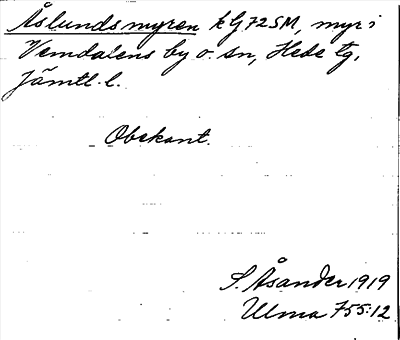 Åslundsmyren kG72SM, myr i
Vemdalens by o. sn, Hede tg,
Jämtl. l.
Obekant.
S. Åsander 1919
Ulma 755:12